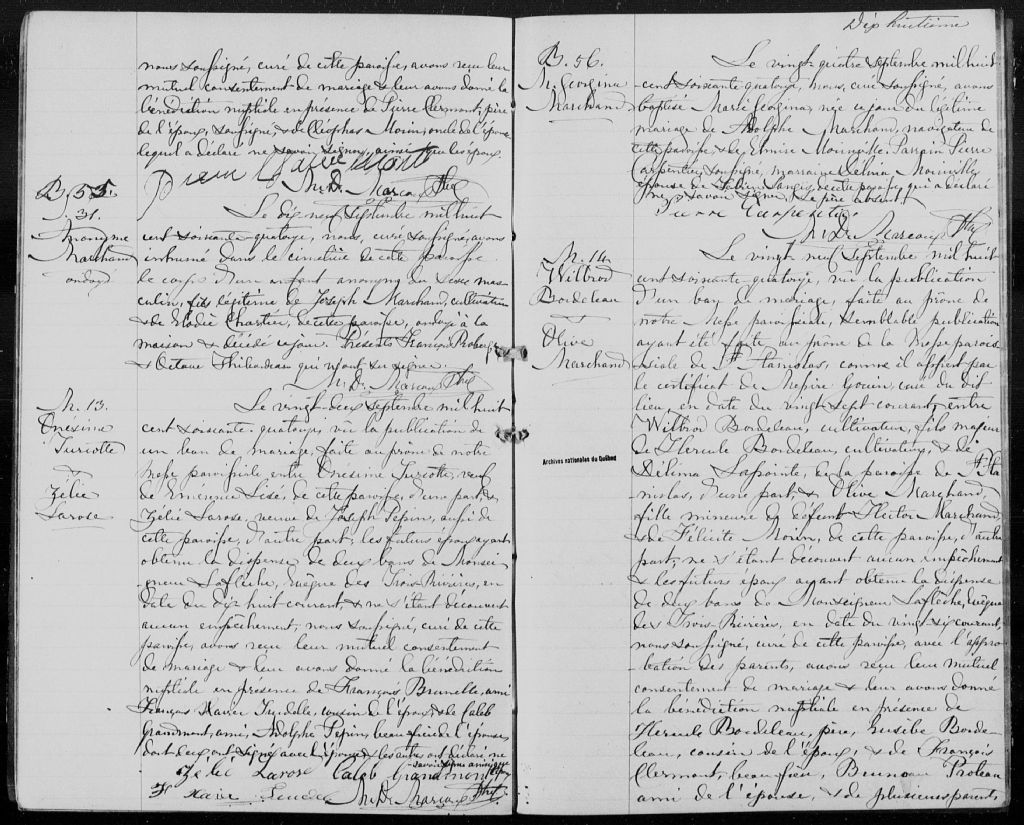 nous soussigné, curé de cette paroisse, avons reçu leur
mutuel consentement de mariage & leur avons donné la
bénédiction nuptiale en présence de Pierre Clermont, père
de l'époux, soussigné, & de Cléophas Morin, oncle de l'épouse
lequel a déclaré ne savoir signer, ainsi que les époux.
Pierre Clairemont
N. D. Marcoux Ptre
B. 55.
S. 31.
Anonyme
Marchand
ondoyé
Le dix neuf Septembre mil huit
cent soixante-quatorze, nous, curé soussigné, avons
inhumé dans le cimetière de cette paroisse
le corps d'un enfant anonyme du sexe mas
culin, fils légitime de Joseph Marchand, cultivateur
& de Elodie Chartier, de cette paroisse, ondoyé à la
maison & décédé ce jour. Présents François
& Octave Thibaudeau qui n'ont su signer.
N. D. Marcoux Ptre
M. 13.
Onésime
Turcotte
&
Zélie
Larose
Le vingt-deux septembre mil huit
cent soixante quatorze, vu la publication de
un ban de mariage, faite au prône de notre
Messe paroissiale entre Onésime Turcotte, veuf
de Emérence Lisé, de cette paroisse, d'une part, &
Zélie Larose, veuve de Joseph Pepin, aussi de
cette paroisse, d'autre part; les futurs époux ayant
obtenu la dispense de deux bans de Monsei
gneur Laflèche, évêque des Trois-Rivières, en
date du dix huit courant, & ne s'étant découvert
aucun empêchement, nous soussigné, curé de cette
paroisse, avons reçu leur mutuel consentement
de mariage & leur avons donné la bénédiction
nuptiale en présence de François Brunelle, ami
François Xavier Trudelle, cousin de l'époux, & de Caleb
Grandmont, ami, Adolphe Pepin, beau-fils de l'épouse
dont deux ont signé avec l'épouse, & les autres ont déclaré ne
savoir signer ainsi que l'époux
Zelié Larose Caleb Grandmont
Fr Xavie N. D. Marcoux Ptre
Dix huitième
B. 56.
M. Georgina
Marchand
Le vingt-quatre Septembre mil huit
cent soixante quatorze, nous, curé soussigné, avons
baptisé Marie Géorgina, née ce jour du légitime
mariage de Adolphe Marchand, navigateur de
cette paroisse, & de Elmire Mainville. Parrain Pierre
Carpentier, soussigné, marraine Délima Mainville
épouse de de cette paroisse, qui a déclaré
ne savoir signer. Le père absent.
Pierre Carpentier
N. D. Marcoux Ptre
M. 14.
Wilbrod
Bordeleau
&
Olive
Marchand
Le vingt neuf Septembre mil huit
cent soixante quatorze, vu la publication
d'un ban de mariage, faite au prône de
notre Messe paroissiale, semblable publication
ayant été faite au prône de la Messe parois
siale de St Stanislas, comme il appert par
le certificat de Messire Gouin, curé du dit
lieu, en date du vingt sept courant, entre
Wilbrod Bordeleau, cultivateur, fils majeur
de Hercule Bordeleau, cultivateur, & de
Délima Lapointe, de la paroisse de St Sta
nislas, d'une part, & Olive Marchand,
fille mineure de défunt Hector Marchand,
& de Félicité Morin, de cette paroisse, d'autre
part; ne s'étant découvert aucun empêchement
& les futurs époux ayant obtenu la dispense
de deux bans de Monseigneur Laflèche, évêque
des Trois-Rivières, en date du vingt-six courant,
nous soussigné, curé de cette paroisse, avec l'appro
bation des parents, avons reçu leur mutuel
consentement de mariage & leur avons donné
la bénédiction nuptiale en présence de
Hercule Bordeleau, père, Eusèbe Borde
leau, cousin de l'époux, & de François
Clermont, beau-frère, Bruneau Proteau
ami de l'épouse, & de plusieurs parents
Archives nationales du Québec